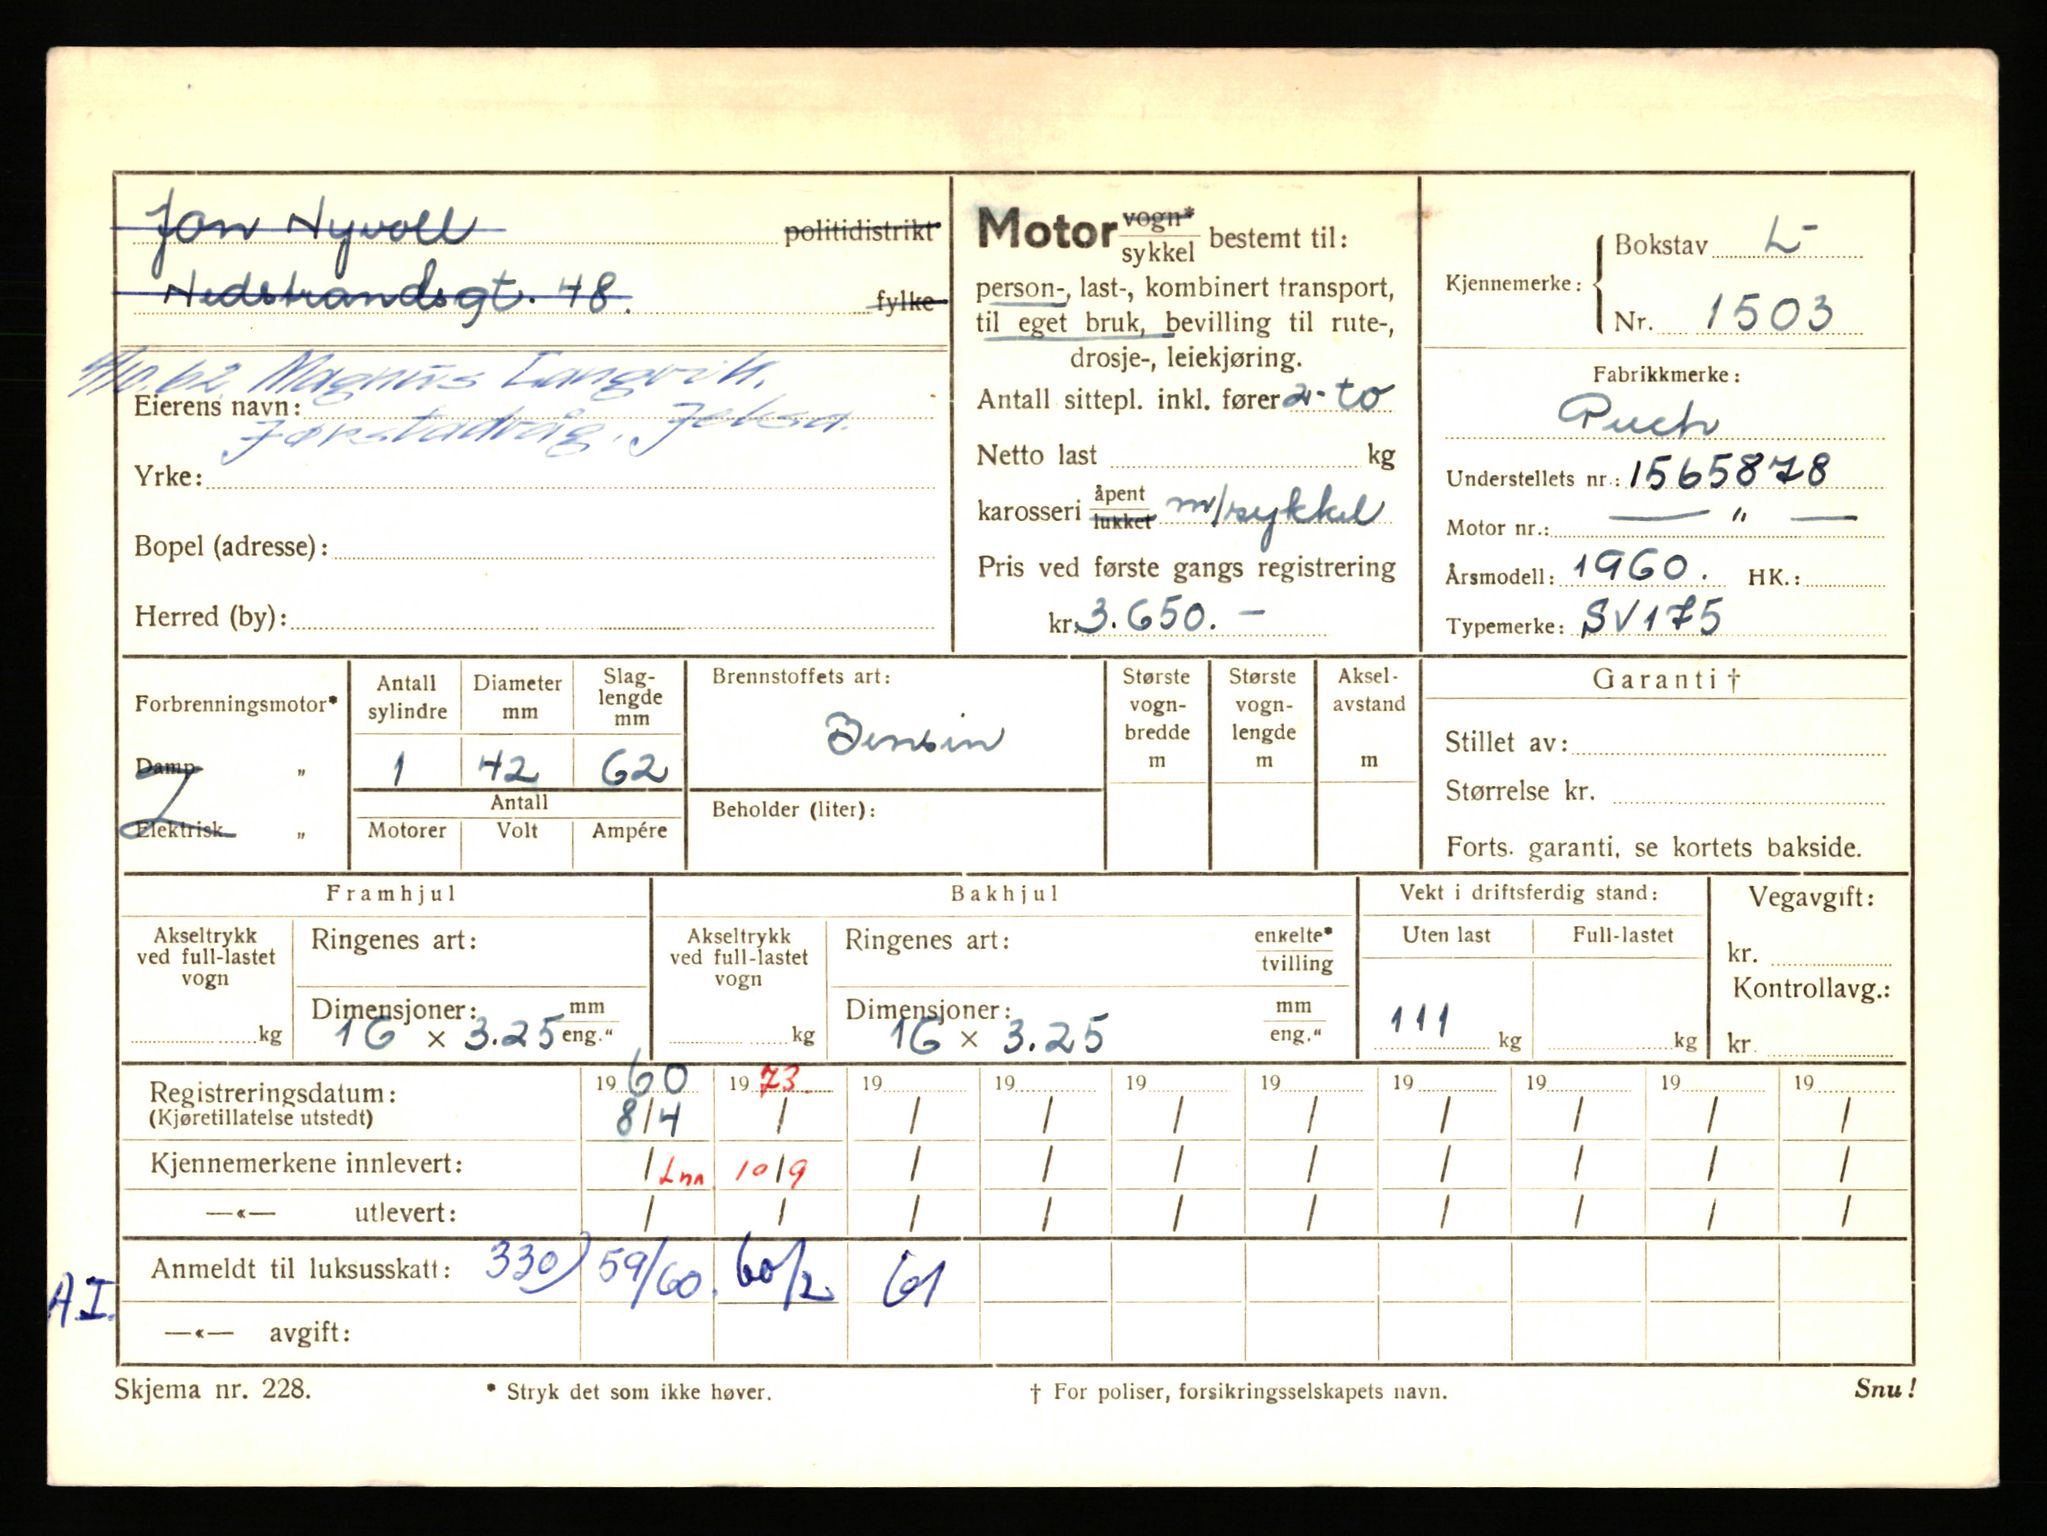 Jon Nyvoll politidistrikt
Nedstrandsgt. 48. fylke
Magnus Langvik.
Eierens navn:
Jørstadvåg, Jelsa.
Yrke:
Bopel (adresse):
Herred (by):
Motor vogn* sykkel bestemt til:
person-, last-, kombinert transport,
til eget bruk, bevilling til rute-,
drosje-, leiekjøring.
Antall sittepl. inkl. fører 2- to
Netto last kg
karosseri åpent lukket m/sykkel
Pris ved første gangs registrering
kr. 3.650. —
Kjennemerke: Bokstav L-
Nr. 1503
Fabrikkmerke:
Puch
Understellets nr.: 1565878
Motor nr.: — " —
Årsmodell: 1960. HK.:
Typemerke: SV175
Forbrenningsmotor*
Damp "
Elektrisk "
Antall sylindre Diameter mm Slag-lengde mm
1 42 62
Antall
Motorer Volt Ampére
Brennstoffets art:
Bensin
Beholder (liter):
Største vogn-bredde m
Største vogn-lengde m
Aksel-avstand m
Garanti †
Stillet av:
Størrelse kr.
Forts. garanti, se kortets bakside.
Framhjul
Akseltrykk ved full-lastet vogn kg
Ringenes art:
Dimensjoner: mm eng."
16 × 3.25
Bakhjul
Akseltrykk ved full-lastet vogn kg
Ringenes art: enkelte* tvilling
Dimensjoner: mm eng."
16 × 3.25
Vekt i driftsferdig stand:
Uten last Full-lastet
111 kg kg
Vegavgift:
kr.
Kontrollavg.:
kr.
Registreringsdatum: 19 60 19 73 19 19 19 19 19 19 19 19
(Kjøretillatelse utstedt) 8/4 / / / / / / / / /
Kjennemerkene innlevert: / Inn. 10/9 / / / / / / / /
—«— utlevert: / / / / / / / / / /
Anmeldt til luksusskatt: 330) 59/60. 60/2 61
A.I.
—«— avgift:
Skjema nr. 228. * Stryk det som ikke høver. † For poliser, forsikringsselskapets navn. Snu!